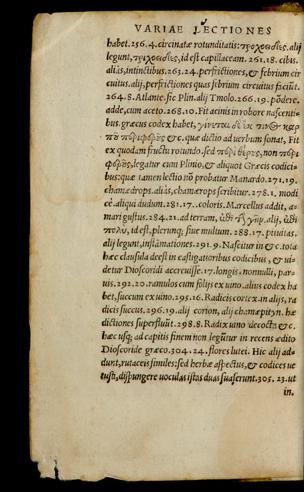 VARIAE LECTIONES
habet. 256. 4. circinatæ rotunditatis: τροχοειδὲς, alij
legunt, τριχοειδὲς, id est capillaceam. 261. 18. cibis.
aliàs, intinctibus. 263. 24. perfrictiones, & febrium cir
cuitus. alij, perfrictiones quas febrium circuitus faciũt.
264. 8. Atlante. sic Plin. alij Tmolo. 266. 19. põdere,
adde, cum aceto. 268. 10. Fit acinis in robore nascenti-
bus. græcus codex habet,
ex. quæ dictio ad verbum sonat, Fit
ex quodam fructu rotundo. sed non
legatur cum Plinio, & aliquot Græcis codici-
bus: quæ tamen lectio nõ probatur Manardo. 271. 19.
chamædrops. aliàs, chamærops scribitur. 278. 1. modi
cè. aliqui dudum. 281. 17. coloris. Marcellus addit, a-
mari gustus. 284. 21. ad terram, alij,
id est, plerunq; siue multum. 288. 17. pituitas.
alij legunt, inflãmationes. 291. 9. Nascitur in &c. tota
hæc clausula deest in castigatioribus codicibus, & ui-
detur Dioscoridi accreuisse. 17. longis. nonnulli, par-
uis. 292. 20. ramulos cum folijs ex uino. alius codex ha
bet, succum ex uino. 295. 16. Radicis cortex. in alijs, ra
dicis succus. 296. 19. alij corion, alij chamæpityn. hæ
dictiones superfluũt. 298. 8. Radix uino decocta &c.
hæc usq; ad capitis finem non legũtur in recens ædito
Dioscoride græco. 304. 24. flores lutei. Hic alij ad-
dunt, rutaceis similes: sed herbæ aspectus, & codices ue
tusti, dispungere voculas istas duas suaserunt. 305. 23. ut
in.